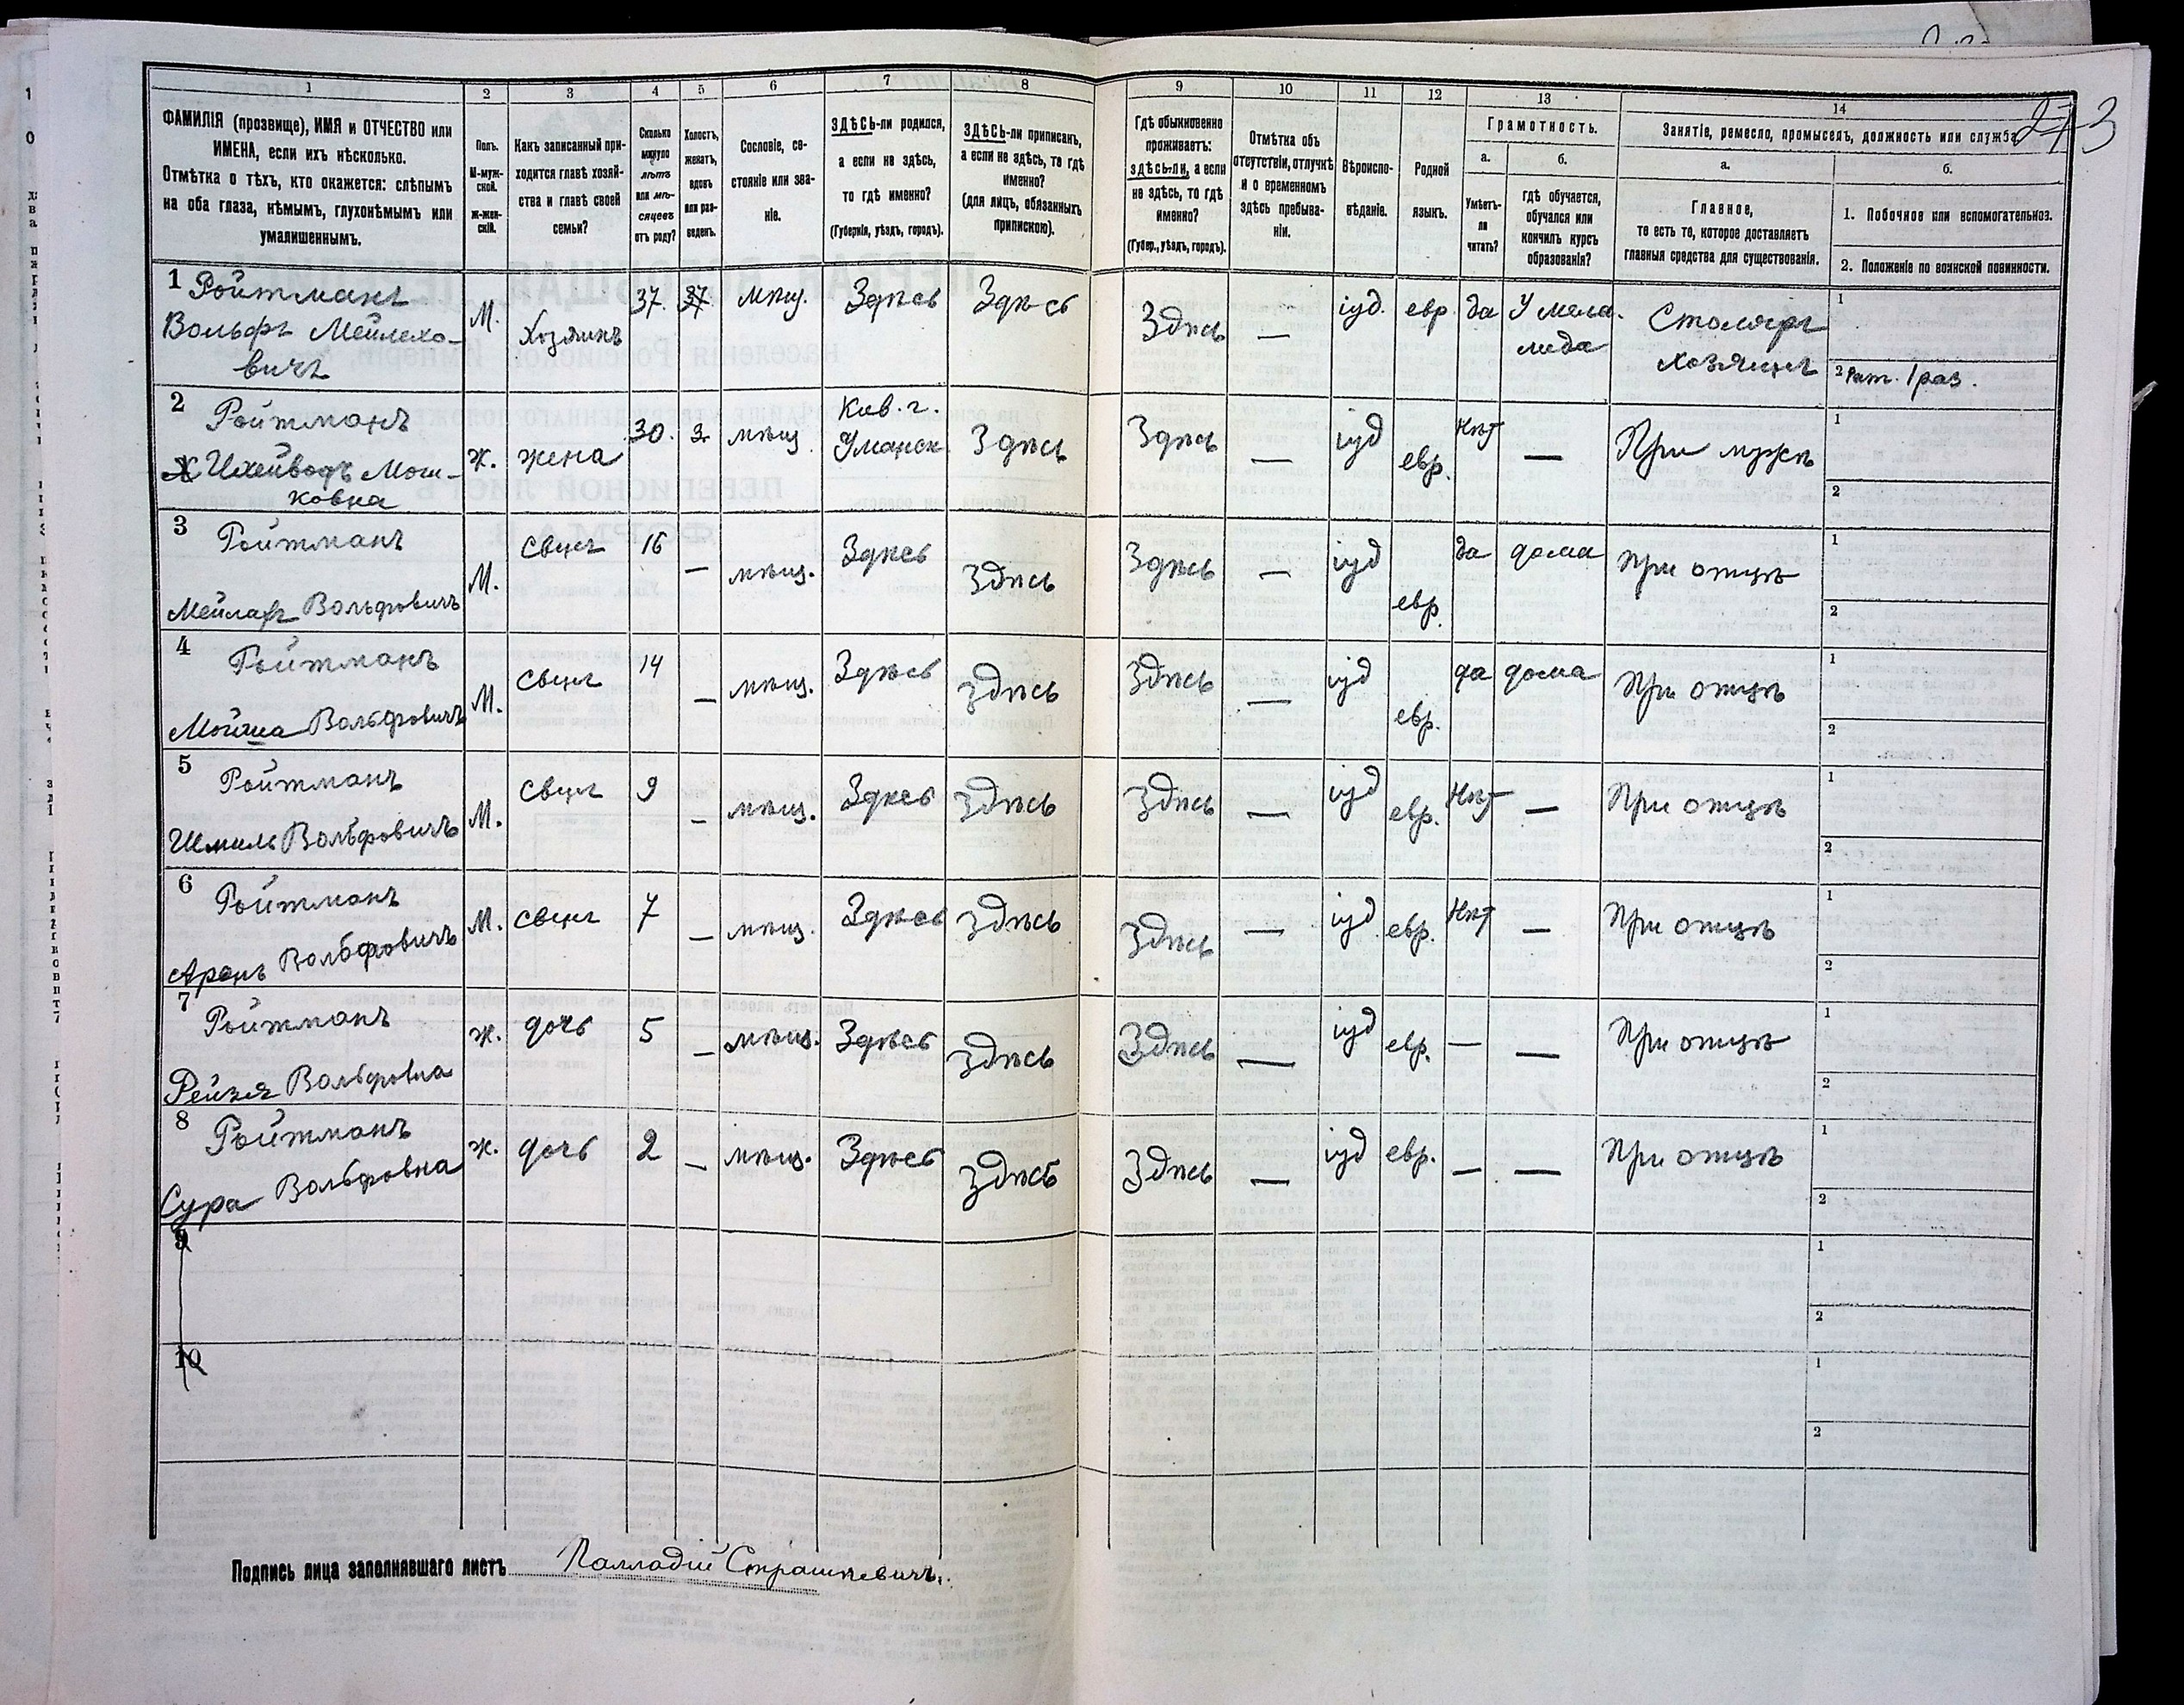 273
1
2
3
4
5
6
7
8
9
10
11
12
13
14
ФАМИЛІЯ (прозвище), ИМЯ и ОТЧЕСТВО или
ИМЕНА, если ихъ нѣсколько.
Отмѣтка о тѣхъ, кто окажется: слѣпымъ
на оба глаза, нѣмымъ, глухонѣмымъ или
умалишеннымъ.
Полъ.
М-муж-
ской.
ж-жен-
скій.
Какъ записанный при-
ходится главѣ хозяй-
ства и главѣ своей
семьи?
Сколько
минуло
лѣтъ
или мѣ-
сяцевъ
отъ роду?
Холостъ,
женатъ,
вдовъ
или раз-
веденъ.
Сословіе, со-
стояніе или зва-
ніе.
ЗДѢСЬ-ли родился,
а если не здѣсь,
то гдѣ именно?
(Губернія, уѣздъ, городъ).
ЗДѢСЬ-ли приписанъ,
а если не здѣсь, то гдѣ
именно?
(для лицъ, обязанныхъ
припискою).
Гдѣ обыкновенно
проживаетъ:
здѣсь-ли, а если
не здѣсь, то гдѣ
именно?
(Губер., уѣздъ, городъ).
Отмѣтка объ
отсутствіи, отлучкѣ
и о временномъ
здѣсь пребыва-
ніи.
Вѣроиспо-
вѣданіе.
Родной
языкъ.
Грамотность.
а.
Умѣетъ-
ли
читать?
б.
гдѣ обучается,
обучался или
кончилъ курсъ
образованія?
Занятіе, ремесло, промыселъ, должность или служба.
а.
Главное,
то есть то, которое доставляетъ
главныя средства для существованія.
б.
1. Побочное или вспомогательное.
2. Положеніе по воинской повинности.
1 Ройтманъ
Вольфъ Мейлехо-
вичъ
М. Хозяинъ 37. мѣщ. Здѣсь Здѣсь Здѣсь — іуд. евр. да У мела-
меда
Столяръ
хозяинъ
1
2 Рат. 1 раз.
2 Ройтманъ
Шейводъ Мош-
ковна
ж. жена 30. з. мѣщ Кiев. г.
Уманск Здѣсь Здѣсь — іуд евр. Нѣт — При мужѣ
1
2
3 Ройтманъ
Мейлахъ Вольфовичъ
М. сынъ 16 — мѣщ. Здѣсь Здѣсь Здѣсь — іуд евр. да дома При отцѣ
1
2
4 Ройтманъ
Мойша Вольфовичъ
М. сынъ 14 — мѣщ. Здѣсь Здѣсь Здѣсь — іуд евр. да дома При отцѣ
1
2
5 Ройтманъ
Шмиль Вольфовичъ
М. сынъ 9 — мѣщ. Здѣсь Здѣсь Здѣсь — іуд евр. Нѣт — При отцѣ
1
2
6 Ройтманъ
Аронъ Вольфовичъ
М. сынъ 7 — мѣщ. Здѣсь Здѣсь Здѣсь — іуд евр. Нѣт — При отцѣ
1
2
7 Ройтманъ
Рейзя Вольфовна
ж. дочь 5 — мѣщ. Здѣсь Здѣсь Здѣсь — іуд евр. — — При отцѣ
1
2
8 Ройтманъ
Сура Вольфовна
ж. дочь 2 — мѣщ. Здѣсь Здѣсь Здѣсь — іуд евр. — — При отцѣ
1
2
9
1
2
10
1
2
Подпись лица заполнявшаго листъ Палладій Страшкевичъ.